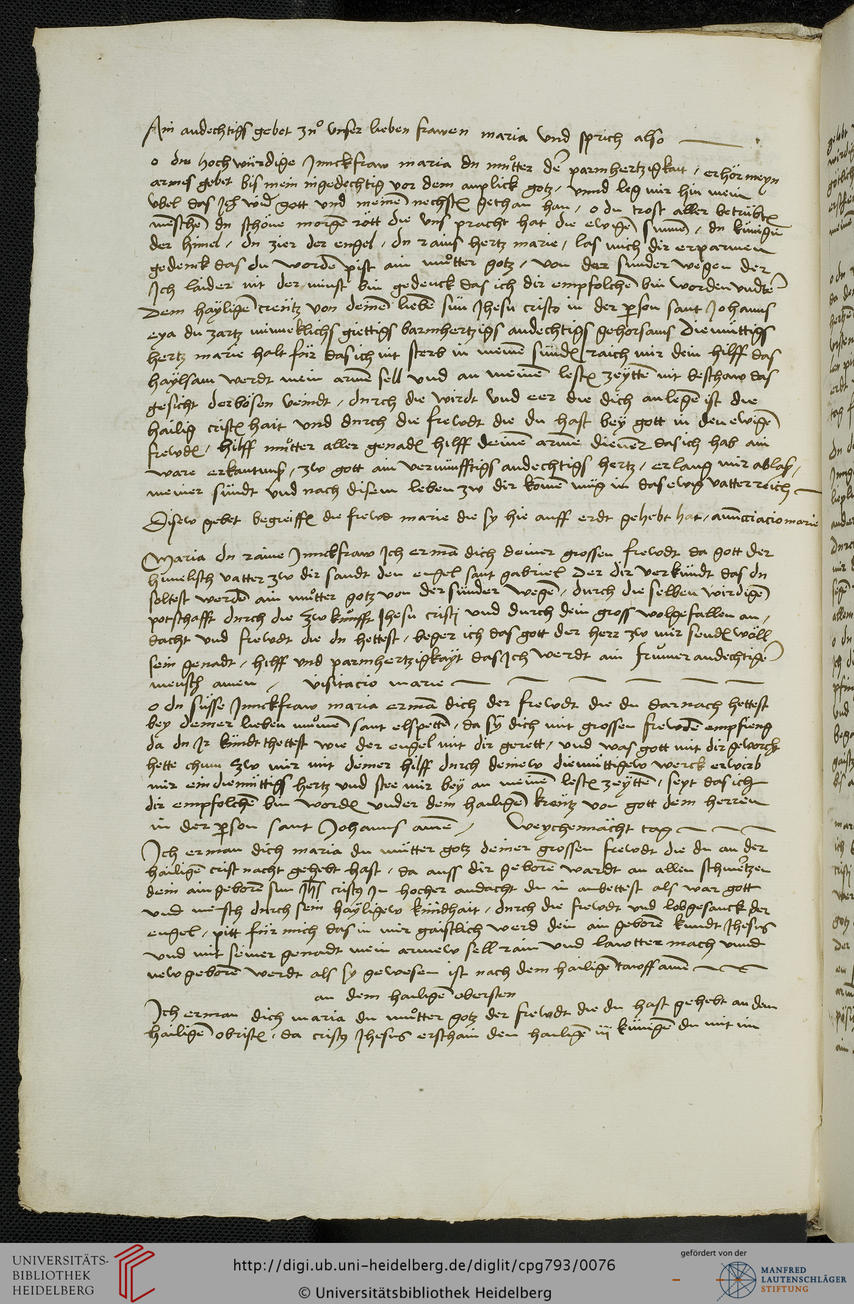 Ain andechtigs gebet zuo vnser lieben frawen maria vnd sprich also
o du hochwürdige Junckfraw maria du muotter der parmhertzigkait / erhör meyn
armes gebet bis mein ingedechtig vor dem anplick gotz / vnnd leg mir hin mein
vbel das ich wider gott vnd meinen nechsten gethan han / o du trost aller betrübten
menschen du schöne morgen rött die vns pracht hat die ewigen sunnen / du künigin
der himel / du zier der engel / du rains hertz marie / las mich dir erparmen
gedenck das du worden pist ain muotter gotz / von der sünder wegen der
Ich laider nit der minst bin gedenck das ich dir empfolchen bin worden vnder
dem hayligen creütz von deinem lieben sun Jhesu cristo in der person sant Johanns
eya du zartz minneklichs giettigs barmhertzigs andechtigs gehorsams diemüttigs
hertz marie halt für das ich nit sterb in meinen sünden raich mir dein hilff das
haylsam werdt mein armen sell vnd an meinen lesten zeytten nit beschaw das
gesicht der bösen veindt / durch die wirdt vnd eer die dich anlegen ist die
hailig cristenhait vnd durch die frewdt die du hast bey gott in den ewigen
frewden / hilff muotter aller genaden hilff deinem armen diener das ich hab ain
ware erkantnus / zw gott ain vernünfftigs andechtigs hertz / erlang mir ablas /
meiner sündt vnd nach disem leben zw dir komen müg in das ewig vatterreich
Disew gebet begreiffen die frewd marie die sy hie auff erdt gehebt hat / annunciacio marie
Maria du raine Junckfraw Ich erman dich deiner grossen frewdt da gott der
himelisch vatter zw dir sandt den engel sant gabriel der dir verkündt das du
soltest werden ain muotter gotz von der sünder wegen / durch die selben wirdigen
potschafft durch die zwkunfft Jhesu cristi vnd durch dein gross wolgefallen an /
dacht vnd frewdt die du hettest / beger ich das gott der herr zw mir senden wöll
sein genadt / hilff vnd parmhertzigkayt das Ich werdt ain frumer andechtiger
mensch amen / visitacio marie
o du süsse Junckfraw maria erman dich der frewdt die du darnach hettest
bey deiner lieben muomen sant elspetten / da sy dich mit grossen frewden empfieng
da du Ir kundt thettest wie der engel mit dir gerett / vnd was gott mit dir geworcht
hette chum zw mir mit deiner hilff durch deinew diemüttigew werck erwirb
mir ein diemüttigs hertz vnd stee mir bey an meinen lesten zeytten / seyt das ich
dir empfolchen bin worden vnder dem hailigen kreütz von gott dem herren
in der person sant Johanns amen / Weychennächt tag
Ich erman dich maria du muotter gotz deiner grossen frewdt die du an der
hailigen cristnacht gehebt hast / da auss dir geboren wardt an allen schmertzen
dein aingeboren sun Jhs cristus In hocher andacht du in anbettest als war gott
vnd mensch durch sein hayligew kindhait / durch die frewdt vnd lobgesanck der
engel / pitt für mich das in mir gaistlich werd dein ain geboren kindt Jhesus
vnd mit seiner genadt mein armew sell rain vnd lawtter mach vnnd
new geboren werdt als sy gewesen ist nach dem hailigen tawff amen
an dem hailigen obersten
Ich erman dich maria du muotter gotz der frewdt die du hast gehebt an dem
hailigen obristen / da cristus Jhesus erschain den hailigen iij künigen du mit im
UNIVERSITÄTS-
BIBLIOTHEK
HEIDELBERG
http://digi.ub.uni-heidelberg.de/diglit/cpg793/0076
© Universitätsbibliothek Heidelberg
gefördert von der
MANFRED
LAUTENSCHLÄGER
STIFTUNG